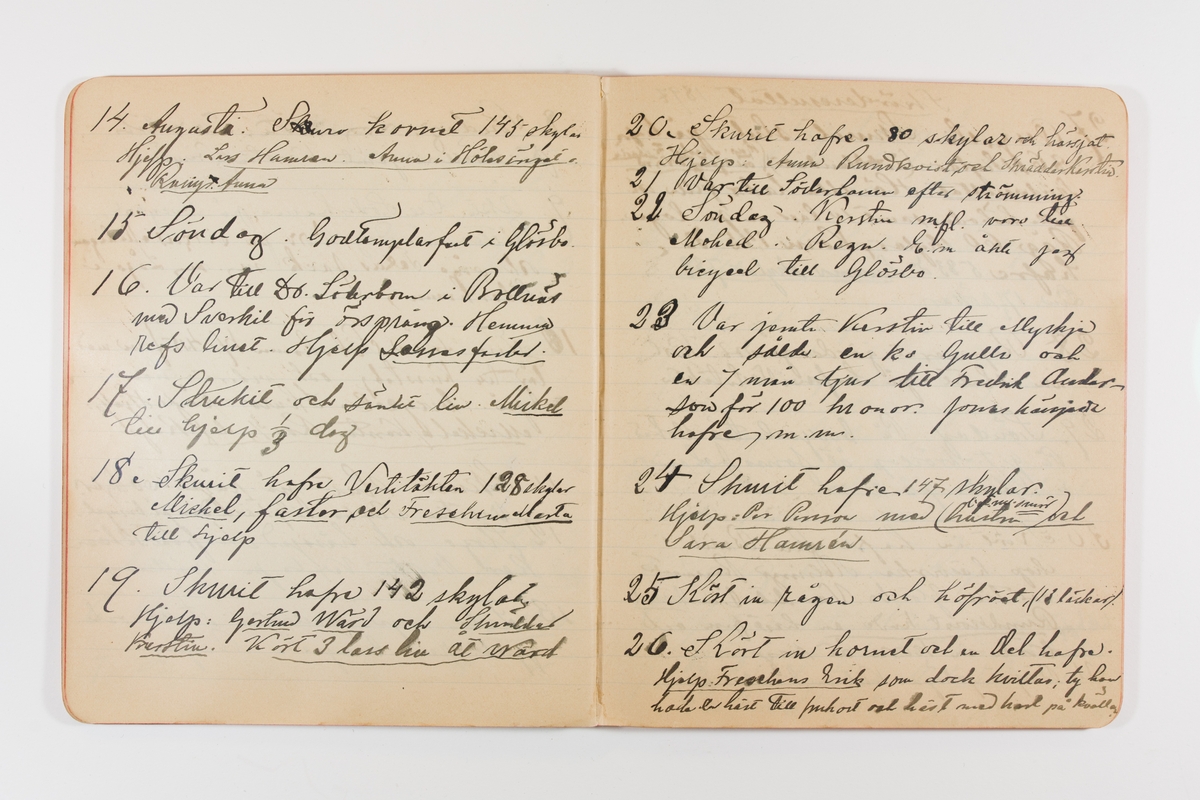 14. Augusti. Skuro kornet 145 skylar
Hjelp: Lars Hamrén. Anna i
Anna
15 Söndag. Godtemplarfest i Glösbo.
16. Var till Dr. Söderbom i Bollnäs
med Sverkil för örsprång. Hemma
refs linet. Hjelp faster.
17. och säntit lin. Mickel
lin hjelp 1/3 dag
18. Skurit hafre 128 skylar
Mickel, faster och Freschens Marta
till hjelp
19. Skurit hafre 142 skylar,
Hjelp: Gertrud Wärd och Skrädder
Kerstin. Kört 3 lass lin åt Wärd
20. Skurit hafre. 80 skylar och hässjat
Hjelp: Anna Rundkvist och Skrädderkerstin.
21 Var till Söderhamn efter strömming.
22 Söndag. Kerstin mfl. voro till
Mohed. Regn. E.m åkte jag
bicycel till Glösbo.
23 Var jemte Kerstin till Myskje
och sålde en ko Gulle och
en 7 mån tjur till Fredrik Ander-
son för 100 kronor. Jonas hässjade
hafre, m.m.
24 Skurit hafre, 147 skylar.
Hjelp: Per Person med (hustru) och
Sara Hamrén
25 Kört in rågen och höfröet,
26. Kört in kornet och en del hafre.
Hjelp Freschens Erik som dock kvittas, ty han
hade en häst till och häst med på kvällen